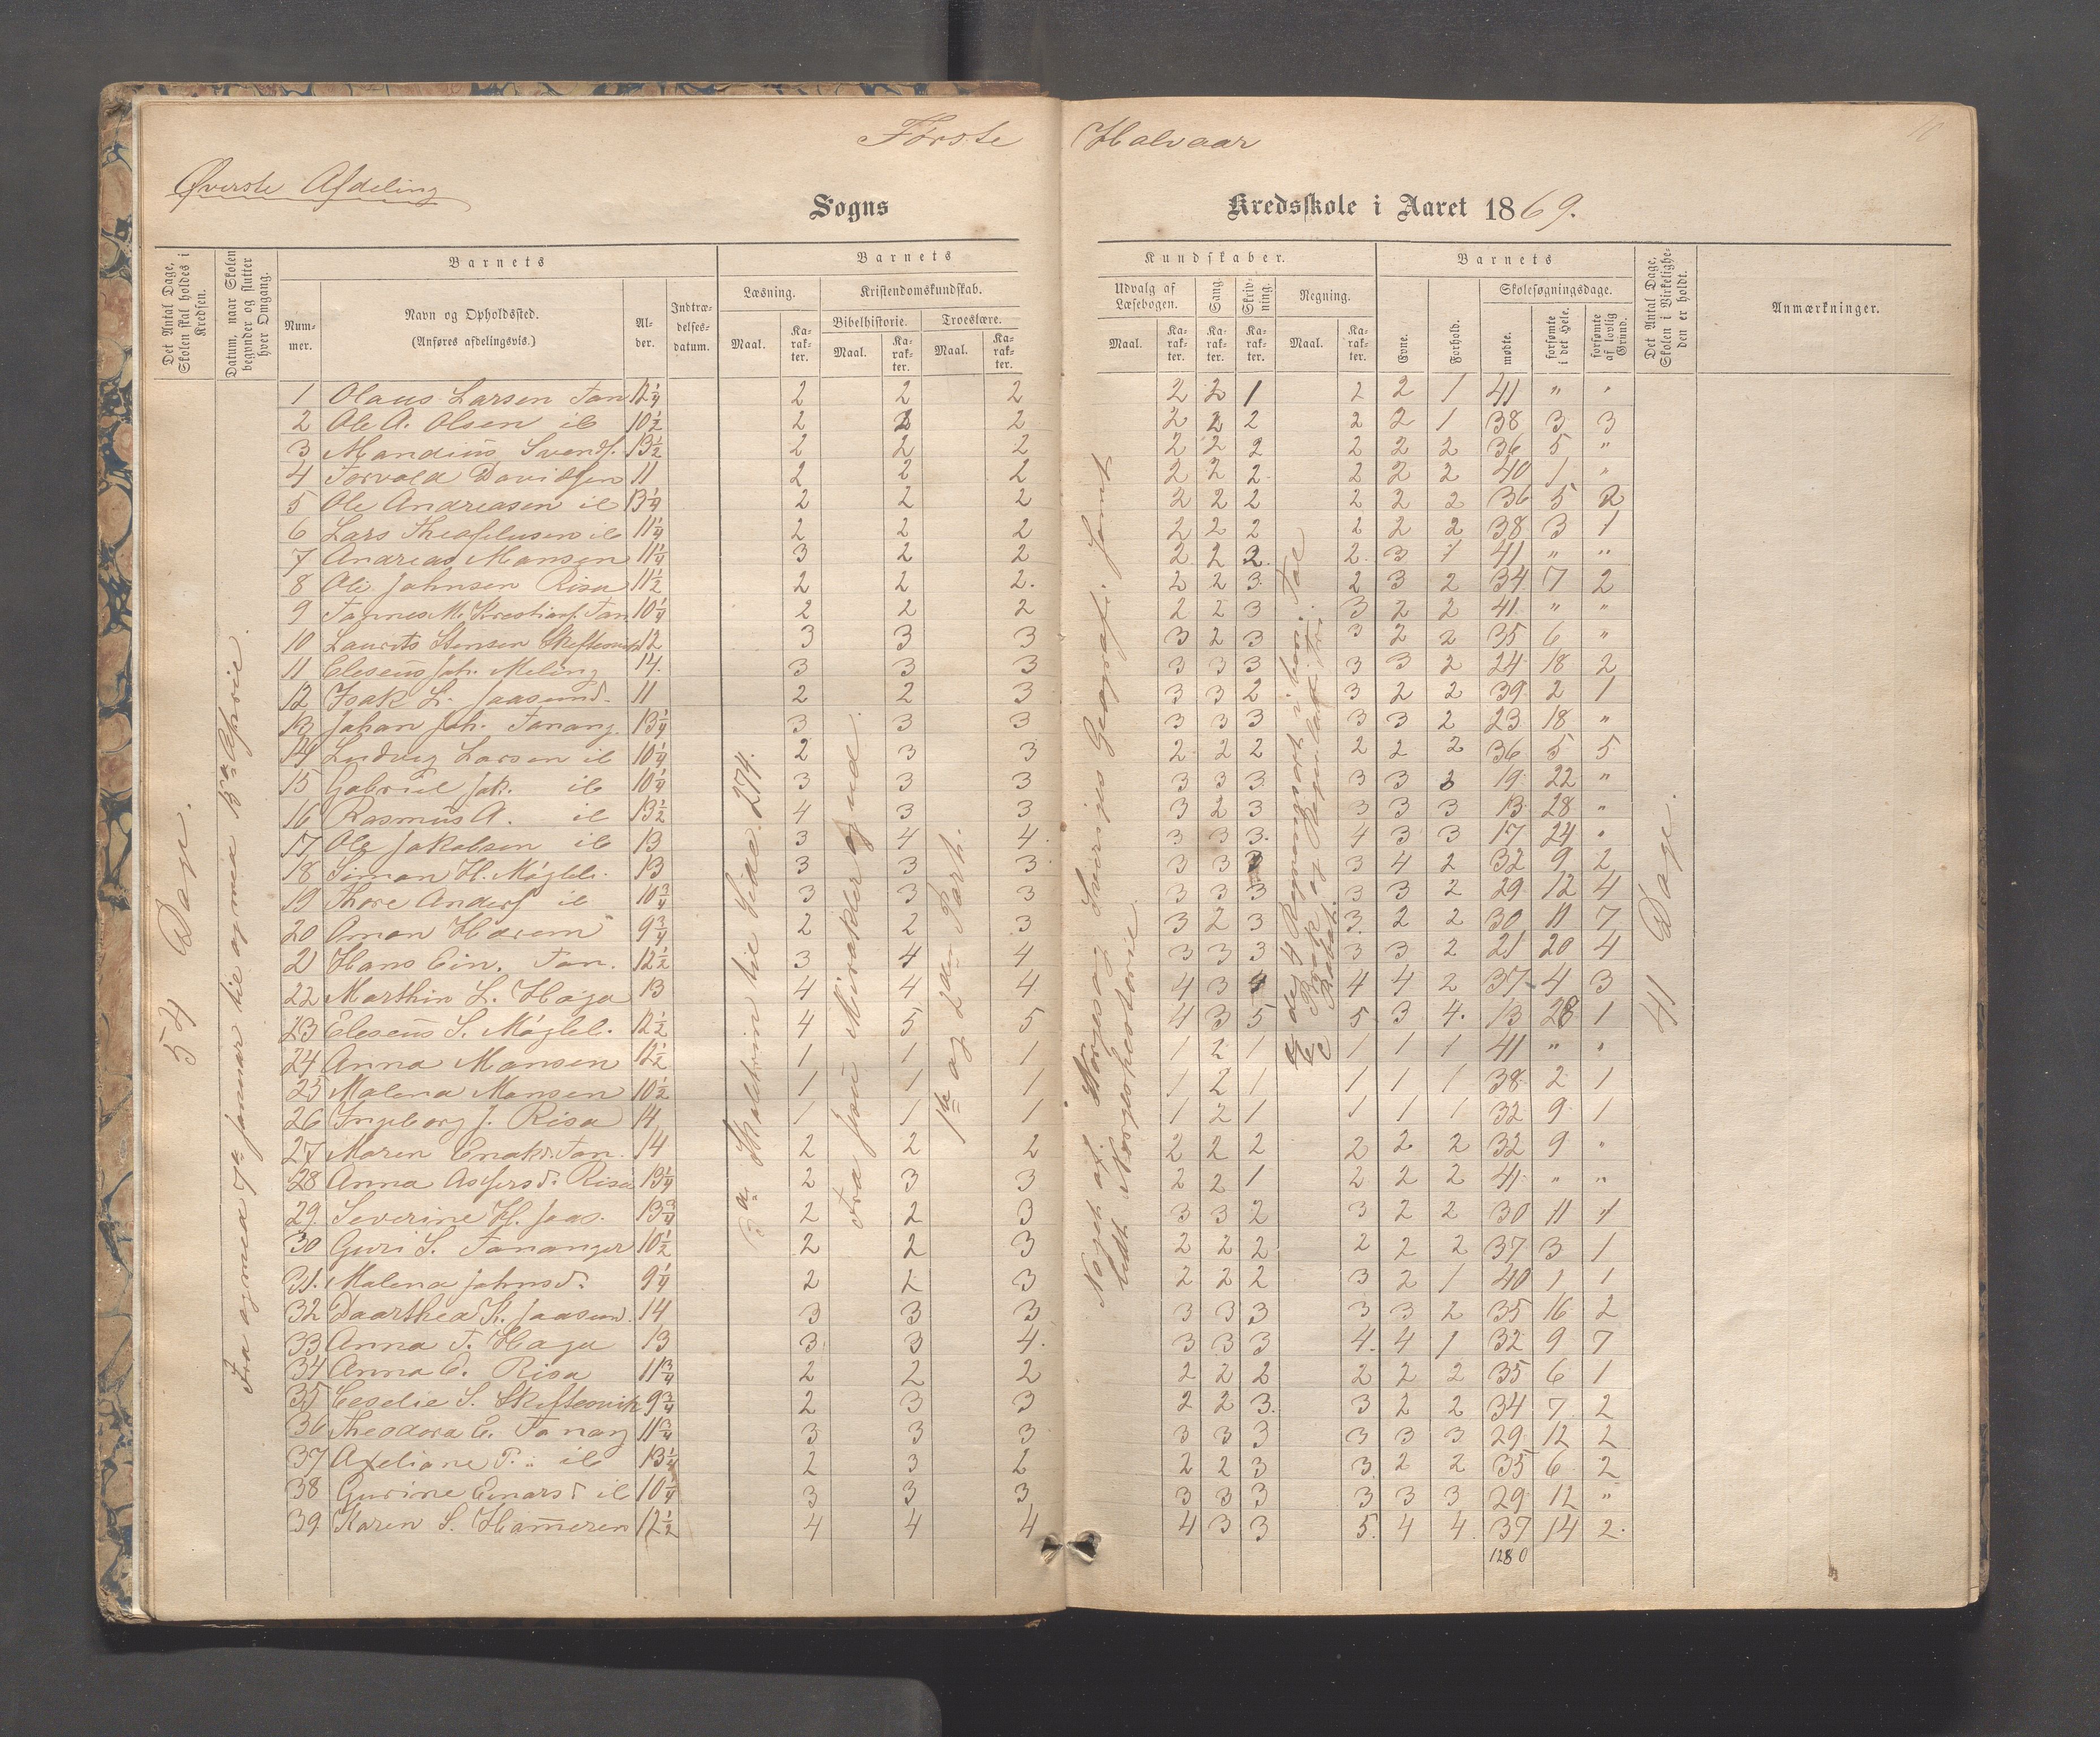 Første Halvaar
10
Øverste Afdeling
Sogns Kredsskole i Aaret 1869.
Det Antal Dage, Skolen skal holdes i Kredsen.
Datum, naar Skolen begynder og slutter hver Omgang.
Barnets
Nummer.
Navn og Opholdssted.
(Anføres afdelingsvis.)
Alder.
Indtrædelsesdatum.
Barnets
Læsning.
Maal.
Karakter.
Kristendomskundskab.
Bibelhistorie.
Maal.
Karakter.
Troeslære.
Maal.
Karakter.
Kundskaber.
Udvalg af Læsebogen.
Maal.
Karakter.
Sang.
Karakter.
Skrivning.
Karakter.
Regning.
Maal.
Karakter.
Barnets
Evne.
Forhold.
Skolesøgningsdage.
mødte.
forsømte i det Hele.
forsømte af lovlig Grund.
Det Antal Dage, Skolen i Virkeligheden er holdt.
Anmærkninger.
54 Dage.
Fra og med 7de Januar til og med 13de Aprie.
til Side 274.
Fra Jesu Mirakler og ud
1ste og 2den Part.
Noget af Norges og Sveriges Geografi samt
lidt Norgeshistorie.
de 4 Regningsart i hon. Tal
Brøk og Regula de Tri
41 Dage.
1 Olaus Larsen Tan 12 1/4 2 2 2 2 2 1 2 2 1 41 " "
2 Ole A. Olsen ib 10 1/2 2 2 2 2 2 2 2 2 1 38 3 3
3 Mandius Svends. 13 1/2 2 2 2 2 2 2 2 2 2 36 5 "
4 Torvald Davidsen 11 2 2 2 2 2 2 2 2 2 40 1 "
5 Ole Andreasen ib 13 1/4 2 2 2 2 2 2 2 2 2 36 5 2
6 Lars Theofelusen ib 11 1/4 2 2 2 2 2 2 2 2 2 38 3 1
7 Andreas Monsen 11 1/4 3 2 2 2 2 2 2 3 1 41 " "
8 Ole Johnsen Risa 11 1/2 2 2 2 2 2 3 2 3 2 34 7 2
9 Tønnes M. Krestians. Tan 10 1/4 2 2 2 2 2 3 3 2 2 41 " "
10 Laurits Stensen Skiftesvik 12 3 3 3 3 2 3 3 2 2 35 6 "
11 Eleseus Joh. Meling 14 3 3 3 3 3 3 3 3 2 24 18 2
12 Isak L. Jaasund 11 2 2 3 3 3 2 3 2 2 39 2 1
13 Johan Joh. Tanang. 13 1/4 3 3 3 3 3 3 3 3 2 23 18 "
14 Ludvig Larsen ib 10 1/4 2 3 3 2 2 2 2 2 2 36 5 5
15 Gabriel Jak. ib 10 1/4 3 3 3 3 3 3 3 3 3 19 22 "
16 Rasmus A. ib 13 1/2 4 3 3 3 2 3 3 3 3 13 28 "
17 Ole Jakobsen ib 13 3 4 4 3 3 3 4 3 3 17 24 "
18 Simon H. Møgleb. 13 3 3 3 3 3 3 3 4 2 32 9 2
19 Thore Anders ib 10 3/4 3 3 3 3 3 3 3 3 2 29 12 4
20 Omon Harem 9 3/4 2 2 3 3 2 3 3 2 2 30 11 7
21 Hans Ein. Tan. 12 1/2 3 4 4 3 3 3 3 3 2 21 20 4
22 Marthin L. Haga 13 4 4 4 4 3 4 4 4 2 37 4 3
23 Eleseus S. Møgleb. 12 1/2 4 5 5 4 3 5 5 3 4 13 28 1
24 Anna Monsen 12 1/2 1 1 1 1 2 1 1 1 1 41 " "
25 Malena Monsen 10 1/2 1 1 1 1 2 1 1 1 1 38 2 1
26 Ingeborg J. Risa 14 1 1 1 1 2 1 1 1 1 32 9 1
27 Maren Enoksd. Tan. 14 2 2 2 2 2 2 2 2 2 32 9 "
28 Anna Asfersd. Risa 13 1/4 2 3 3 2 2 1 2 2 2 41 " "
29 Severine H. Jaas. 13 3/4 2 2 3 3 3 2 3 2 2 30 11 1
30 Guri S. Tananger 10 1/2 2 2 3 2 2 2 2 2 2 37 3 1
31 Malena Johnsd. 9 1/4 2 2 3 2 2 2 3 2 1 40 1 1
32 Daarthea K. Jaasund. 14 3 3 3 3 3 3 3 3 2 35 16 2
33 Anna T. Haga 13 3 3 4 3 3 3 4 4 1 32 9 7
34 Anna E. Risa 11 3/4 2 2 2 2 2 2 2 2 2 35 6 1
35 Ceselie S. Skiftesvik 9 3/4 2 3 3 2 2 3 3 2 2 34 7 2
36 Theodora E. Tanang 11 3/4 3 3 3 3 3 3 3 3 3 29 12 2
37 Axeliane P. " ib 13 1/4 2 3 2 2 2 3 3 2 2 35 6 2
38 Gurine Einarsd ib 10 1/4 3 3 3 3 3 3 3 3 3 29 12 "
39 Karen S. Hameren 12 1/2 4 4 4 4 3 3 5 4 4 37 14 2
1280